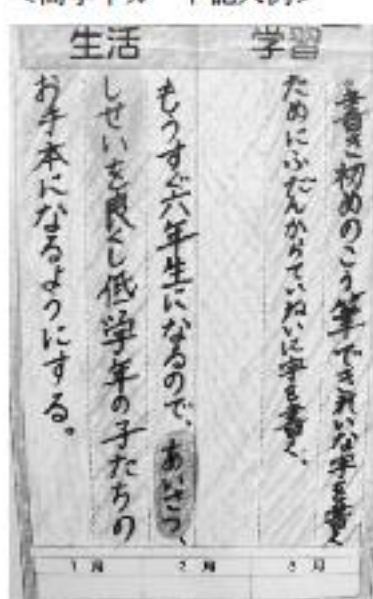 <高学年の 記入例>
学習
書き初めのこう筆できれいな字を書く
ためにふだんからていねいに字を書く。
生活
もうすぐ六年生になるので、あいさつ、
しせいを良くし低学年の子たちの
お手本になるようにする。
1月 2月 3月